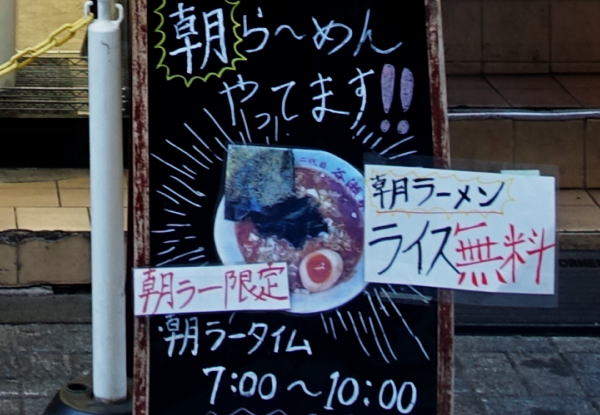 朝らーめん
やってます!!
二代目
朝ラーメン
ライス無料
朝ラー限定
朝ラータイム
7:00〜10:00